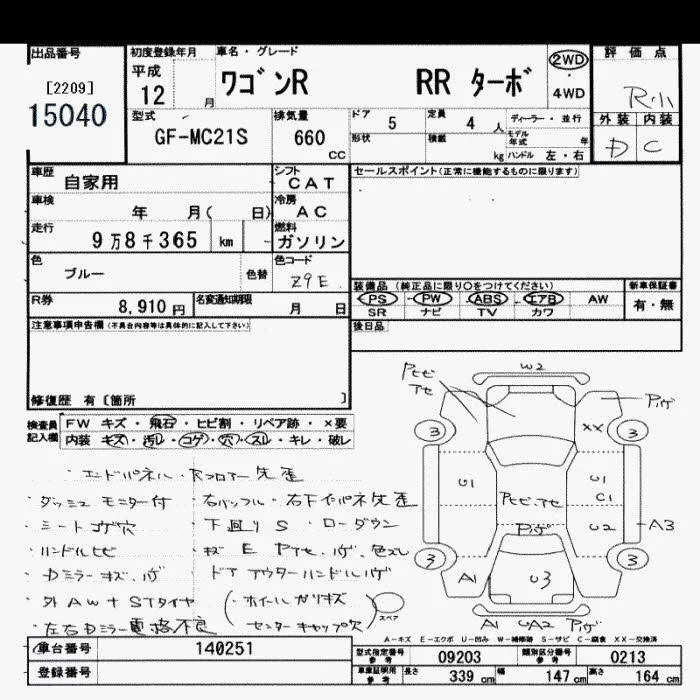 出品番号
[2209]
15040
初度登録年月
平成
12 月
車名・グレード
ワゴンR RR ターボ
2WD
・
4WD
評価点
R小
外装 内装
D C
型式
GF-MC21S
排気量
660
CC
ドア
5
定員
4 人
ディーラー・並行
形状
積載
kg
モデル年式 年
ハンドル 左・右
車歴
自家用
シフト
CAT
車検
年 月( 日)
冷房
AC
走行
9万8千365 km
燃料
ガソリン
色
ブルー
色替
色コード
Z9E
R券
8,910 円
名変通知期限
月 日
セールスポイント(正常に機能するものに限ります)
装備品 (純正品に限り○をつけてください)
新車保証書
PS ・ PW ・ ABS ・ エアB ・ AW
有・無
SR ナビ TV カワ
後日品
注意事項申告欄 (不具合内容等は具体的に記入して下さい)
修復歴 有〔箇所 〕
検査員
記入欄
FW キズ・飛石・ヒビ割・リペア跡・×要
内装 キズ・汚レ・コゲ・穴・スレ・キレ・破レ
・エンドパネル・Rフロアー先歪
・ダッシュモニター付
・右バッフル・右下インパネ先歪
・シートコゲ穴
・下廻りS ・ローダウン
・ハンドルヒビ
・キズ E Pアセ、ハゲ、色ズレ
・Dミラーキズ、ハゲ
ドアアウターハンドルハゲ
・外AW+STタイヤ
(ホイールガリキズ
・左右Dミラー電格不良
センターキャップ欠)
スペア
Pヒビ
アセ
W2
Pハゲ
3
XX
3
U1
Pヒビアセ
Pハゲ
U1
C1
U2
A3
3
3
A1
U3
A1 UA2 Pハゲ
A-キズ E-エクボ U-凹み W-補修跡 S-サビ C-腐食 XX-交換済
車台番号
140251
登録番号
型式指定番号
参考
09203
類別区分番号
参考
0213
車庫証明用
参考
長さ
339 cm
幅
147 cm
高さ
164 cm